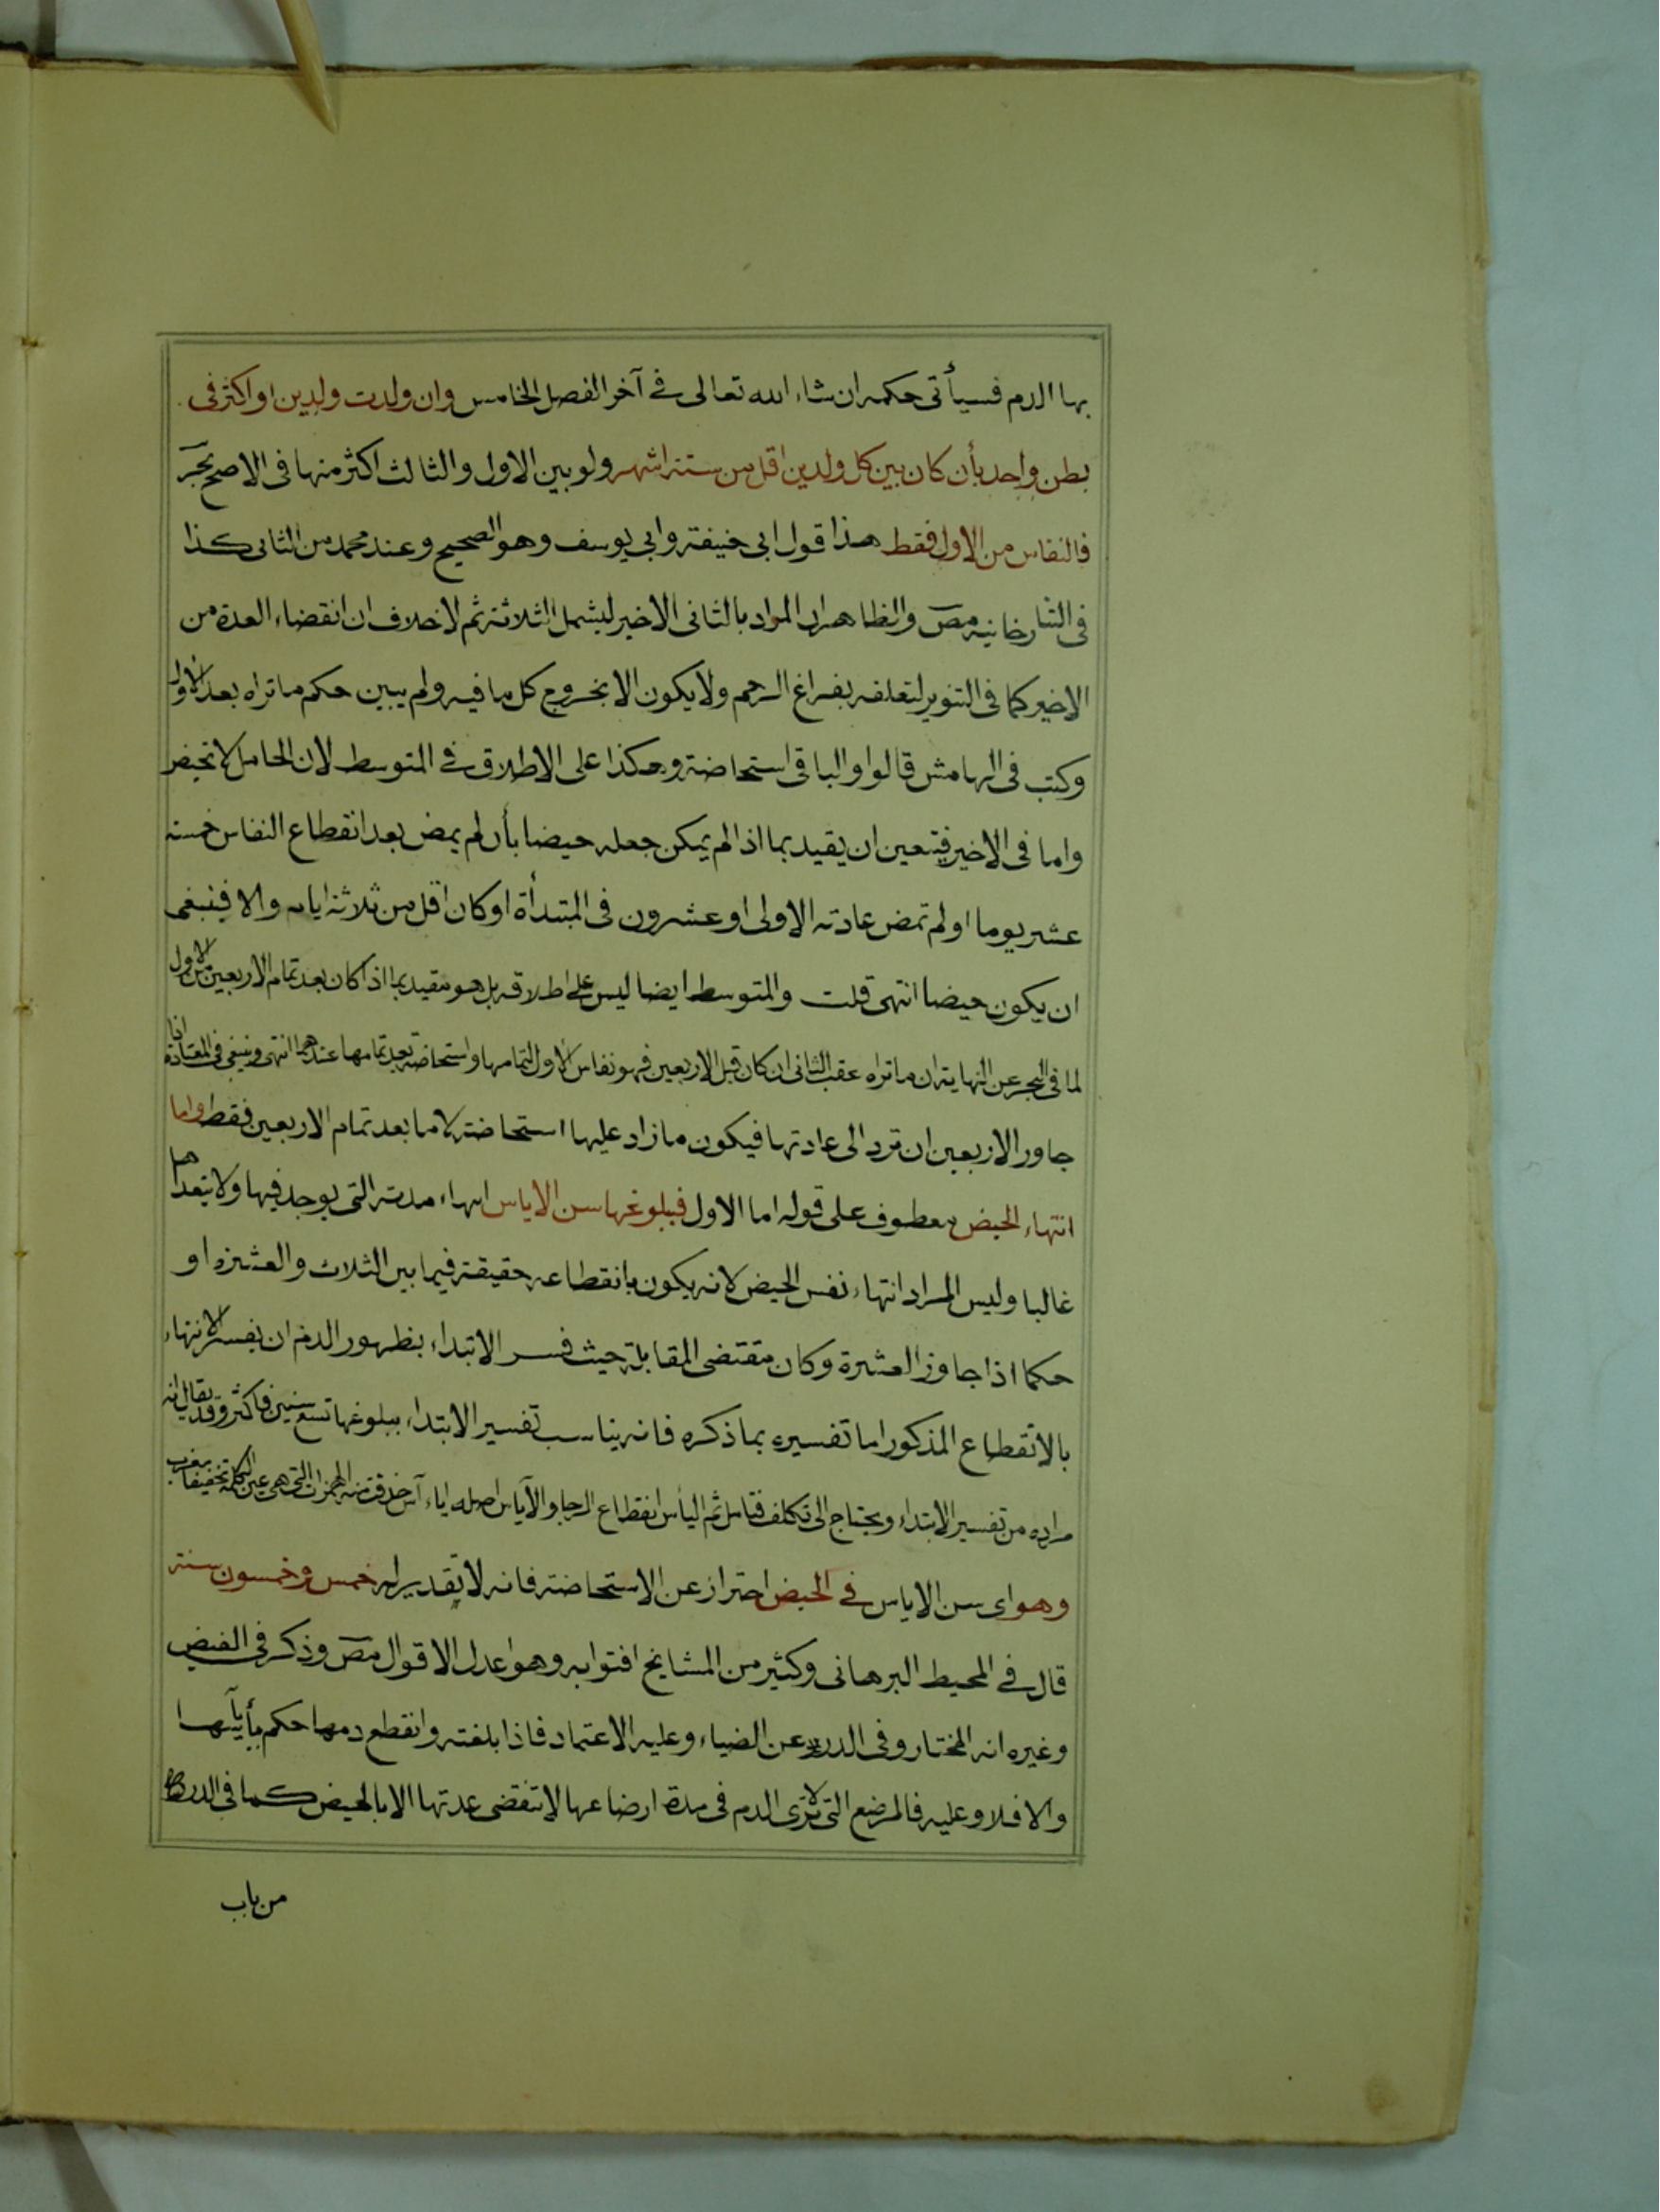 بها الدم فسيأتى حكمه ان شاء الله تعالى فى آخر الفصل الخامس وان ولدت ولدين او اكثر فى
بطن واحد بأن كان بين كل ولدين اقل من ستة اشهر ولو بين الاول والثالث اكثر منها فى الاصح بحر
فالنفاس من الاول فقط هذا قول ابى حنيفة وابي يوسف وهو الصحيح وعند محمد من الثانى كذا
فى التتارخانية مص والظاهر ان المراد بالثانى الاخير ليشمل الثلاثة ثم لا خلاف ان انقضاء العدة من
الاخير كما فى التنوير لتعلقه بفراغ الرحم ولا يكون الا بخروج كل ما فيه ولم يبين حكم ما تراه بعد الاول
وكتب فى الهامش قالوا والباقى استحاضة وهكذا على الاطلاق فى المتوسط لان الحامل لا تحيض
واما فى الاخير فيتعين ان يقيد بما اذا لم يمكن جعله حيضا بأن لم يمض بعد انقطاع النفاس خمسة
عشر يوما او لم تمض عادته الاولى او عشرون فى المبتدأة او كان اقل من ثلاثة ايام والا فينبغى
ان يكون حيضا انتهى قلت والمتوسط ايضا ليس على اطلاقه بل هو مقيد بما اذا كان بعد تمام الاربعين من الاول
لما فى البحر عن النهاية ان ما تراه عقب الثانى ان كان قبل الاربعين فهو نفاس الاول لتمامها واستحاضة بعد تمامها عندهما انتهى وينبغى فى المعتادة اذا
جاوز الاربعين ان ترد الى عادتها فيكون ما زاد عليها استحاضة لا ما بعد تمام الاربعين فقط واما
انتهاء الحيض معطوف على قوله اما الاول فبلوغها سن الاياس انهاء مدته التى يوجد فيها ولا يتعداها
غالبا وليس المراد انتهاء نفس الحيض لانه يكون بانقطاعه حقيقة فيما بين الثلاث والعشرة او
حكما اذا جاوز العشرة وكان مقتضى المقابلة حيث فسر الابتداء بظهور الدم ان يفسر الانتهاء
بالانقطاع المذكور اما تفسيره بما ذكره فانه يناسب تفسير الابتداء ببلوغها تسع سنين فاكثر وقد يقال انه
مراده من تفسير الابتداء ويحتاج الى تكلف فتأمل ثم اليأس انقطاع الرجا والاياس اصله ايآس حذفت منه الهمزة التى هى عين الكلمة تخفيفا مغرب
وهو اى سن الاياس فى الحيض احتراز عن الاستحاضة فانه لا تقدير له خمس وخمسون سنة
قال فى المحيط البرهانى وكثير من المشايخ افتوا به وهو اعدل الاقوال مص وذكر فى الفيض
وغيره انه المختار وفى الدرر عن الضياء وعليه الاعتماد فاذا بلغته وانقطع دمها حكم بأياسها
والا فلا وعليه فالمرضع التى لا ترى الدم فى مدة ارضاعها لا تنقضى عدتها الا بالحيض كما فى الدر
من باب